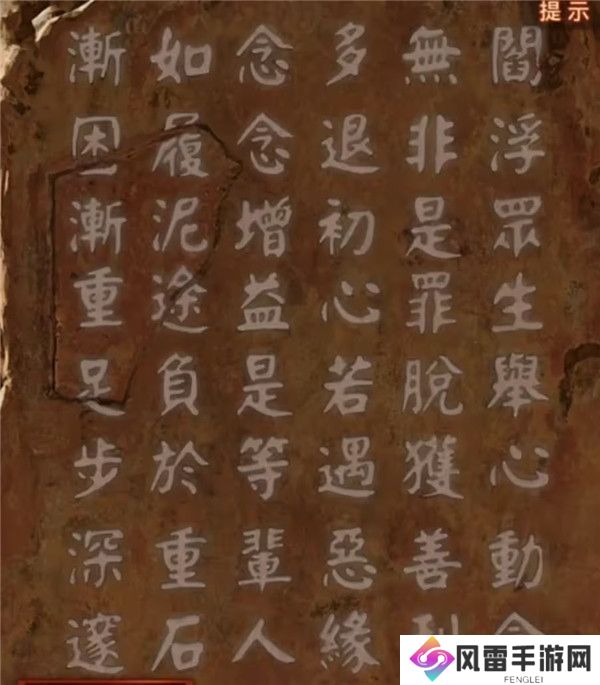 提示
閻浮眾生舉心動念
無非是罪脫獲善利
多退初心若遇惡緣
念念增益是等輩人
如履泥途負於重石
漸困漸重足步深邃
风雷手游网
FENGLEI